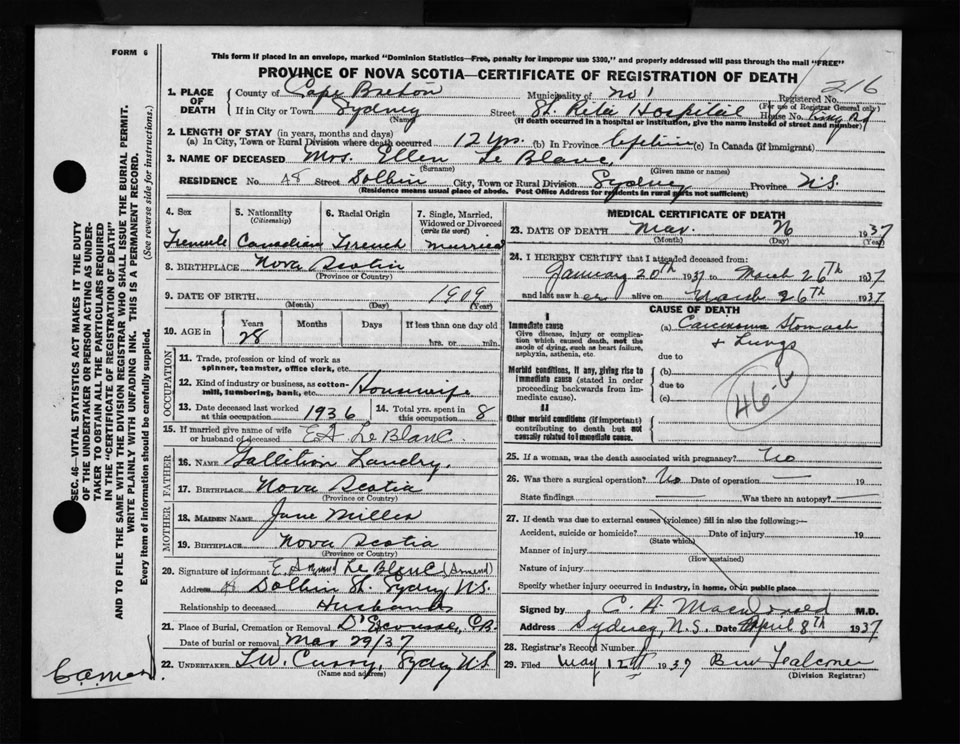 FORM 6
This form if placed in an envelope, marked "Dominion Statistics—Free, penalty for improper use $300," and properly addressed will pass through the mail "FREE"
PROVINCE OF NOVA SCOTIA—CERTIFICATE OF REGISTRATION OF DEATH
216
1. PLACE OF DEATH
County of Cape Breton Municipality of No 1 Registered No.
(For use of Registrar General only)
If in City or Town Sydney Street St. Rita Hospital House No. Kings Rd
(Name) (If death occurred in a hospital or institution, give the name instead of street and number)
2. LENGTH OF STAY (in years, months and days)
(a) In City, Town or Rural Division where death occurred 12 yrs. (b) In Province Lifetime (c) In Canada (if immigrant)
3. NAME OF DECEASED Mrs. Ellen Le Blanc
(Surname) (Given name or names)
RESIDENCE No. 48 Street Dolbin City, Town or Rural Division Sydney Province N.S.
(Residence means usual place of abode. Post Office Address for residents in rural parts not sufficient)
4. Sex 5. Nationality (Citizenship) 6. Racial Origin 7. Single, Married, Widowed or Divorced (write the word)
Female Canadian French Married
8. BIRTHPLACE Nova Scotia
(Province or Country)
9. DATE OF BIRTH 1909
(Month) (Day) (Year)
10. AGE in Years Months Days If less than one day old
28 hrs. or min.
OCCUPATION
11. Trade, profession or kind of work as spinner, teamster, office clerk, etc.
12. Kind of industry or business, as cotton-mill, lumbering, bank, etc. Housewife
13. Date deceased last worked at this occupation 1936 14. Total yrs. spent in this occupation 8
15. If married give name of wife or husband of deceased E.A. Le Blanc
FATHER
16. NAME Landry
17. BIRTHPLACE Nova Scotia
(Province or Country)
MOTHER
18. MAIDEN NAME Jane
19. BIRTHPLACE Nova Scotia
(Province or Country)
20. Signature of informant Le Blanc (Armend)
Address 48 Dolbin St. Sydney N.S.
Relationship to deceased Husband
21. Place of Burial, Cremation or Removal D'Escousse, C.B.
Date of burial or removal Mar 29/37
22. UNDERTAKER T.W. Curry, Sydney N.S.
(Name and address)
MEDICAL CERTIFICATE OF DEATH
23. DATE OF DEATH Mar. 26 1937
(Month) (Day) (Year)
24. I HEREBY CERTIFY that I attended deceased from:
January 20th 1937 to March 26th 1937
and last saw her alive on March 26th 1937
CAUSE OF DEATH
I
Immediate cause
Give disease, injury or complication which caused death, not the mode of dying, such as heart failure, asphyxia, asthenia, etc.
(a) Carcinoma Stomach
& Lungs
due to
Morbid conditions, if any, giving rise to immediate cause (stated in order proceeding backwards from immediate cause).
(b)
due to
(c)
46-b
II
Other morbid conditions (if important) contributing to death but not causally related to immediate cause.
25. If a woman, was the death associated with pregnancy? No
26. Was there a surgical operation? No Date of operation — 19
State findings — Was there an autopsy? —
27. If death was due to external causes (violence) fill in also the following:—
Accident, suicide or homicide? Date of injury 19
(State which)
Manner of injury
(How sustained)
Nature of injury
Specify whether injury occurred in industry, in home, or in public place
Signed by C. H. MacDonald M.D.
Address Sydney, N.S. Date April 8th 1937
28. Registrar's Record Number
29. Filed May 12th 1937 Falconer
(Division Registrar)
SEC. 46—VITAL STATISTICS ACT MAKES IT THE DUTY
OF THE UNDERTAKER OR PERSON ACTING AS UNDER-
TAKER TO OBTAIN ALL THE PARTICULARS REQUIRED
IN THE "CERTIFICATE OF REGISTRATION OF DEATH"
AND TO FILE THE SAME WITH THE DIVISION REGISTRAR WHO SHALL ISSUE THE BURIAL PERMIT.
WRITE PLAINLY WITH UNFADING INK. THIS IS A PERMANENT RECORD.
Every item of information should be carefully supplied. (See reverse side for instructions.)